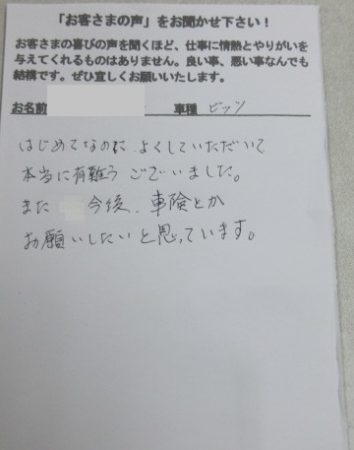 「お客さまの声」をお聞かせ下さい！
お客さまの喜びの声を聞くほど、仕事に情熱とやりがいを
与えてくれるものはありません。良い事、悪い事なんでも
結構です。ぜひ宜しくお願いいたします。
お名前 車種 ビッツ
はじめてなのに よくしていただいて
本当に有難うございました。
また 今後、車険とか
お願いしたいと思っています。